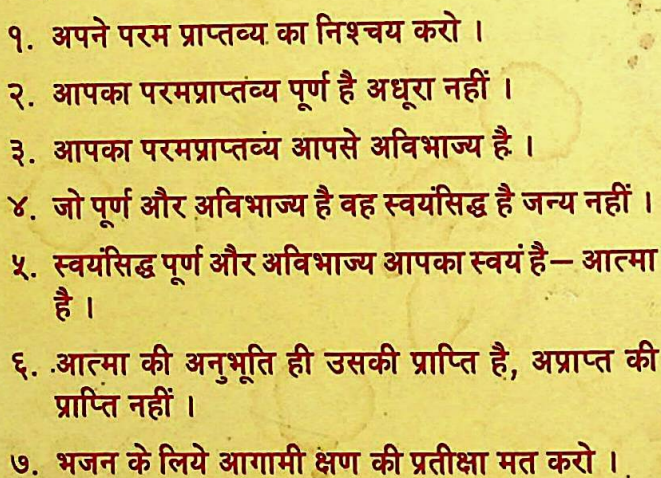 १. अपने परम प्राप्तव्य का निश्चय करो ।
२. आपका परमप्राप्तव्य पूर्ण है अधूरा नहीं ।
३. आपका परमप्राप्तव्य आपसे अविभाज्य है ।
४. जो पूर्ण और अविभाज्य है वह स्वयंसिद्ध है जन्य नहीं ।
५. स्वयंसिद्ध पूर्ण और अविभाज्य आपका स्वयं है— आत्मा
है ।
६. आत्मा की अनुभूति ही उसकी प्राप्ति है, अप्राप्त की
प्राप्ति नहीं ।
७. भजन के लिये आगामी क्षण की प्रतीक्षा मत करो ।